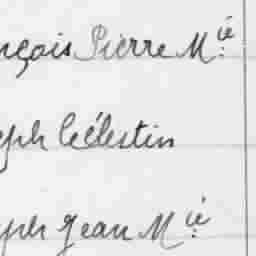 nçois Pierre Mié
eph Célestin
seph Jean Mié